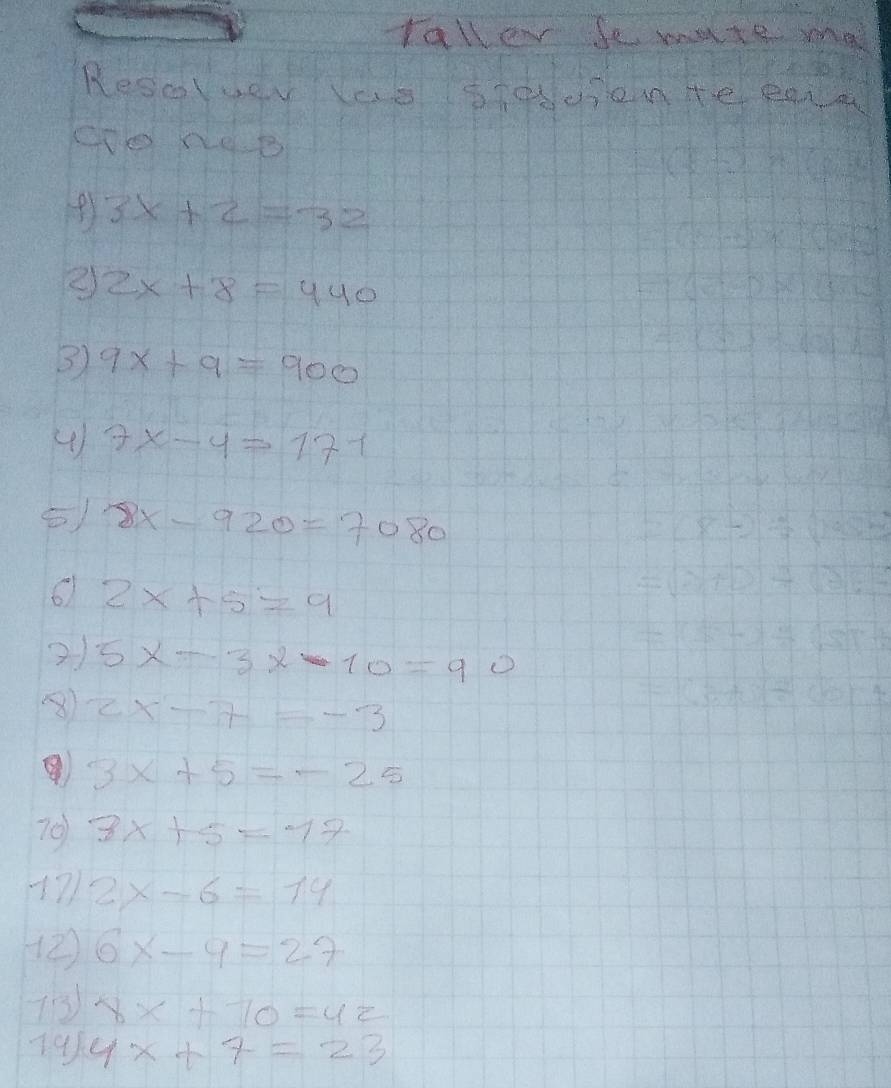 Taller de mate ma
Resolver las siguiente ecua
cio nes
1) 3x + 2 = 32
2) 2x + 8 = 440
3) 9x + 9 = 900
4) 7x - 4 = 171
5) 8x - 920 = 7080
6) 2x + 5 = 9
7) 5x - 3x - 10 = 90
8) 2x - 7 = -3
9) 3x + 5 = -25
10) 3x + 5 = 17
11) 2x - 6 = 14
12) 6x - 9 = 27
13) 8x + 10 = 42
14) 4x + 7 = 23